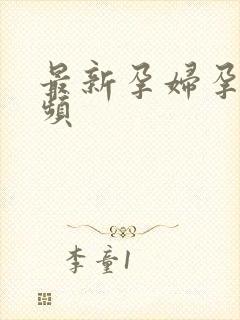 最新孕婦孕
頻
李童1